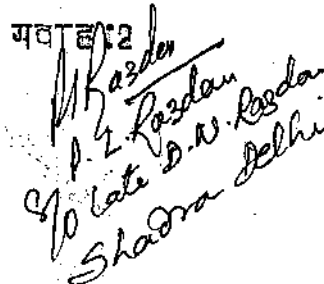 गवाह:2
P. L. Razdan
S/O Late D. N. Razdan
Shadra Delhi